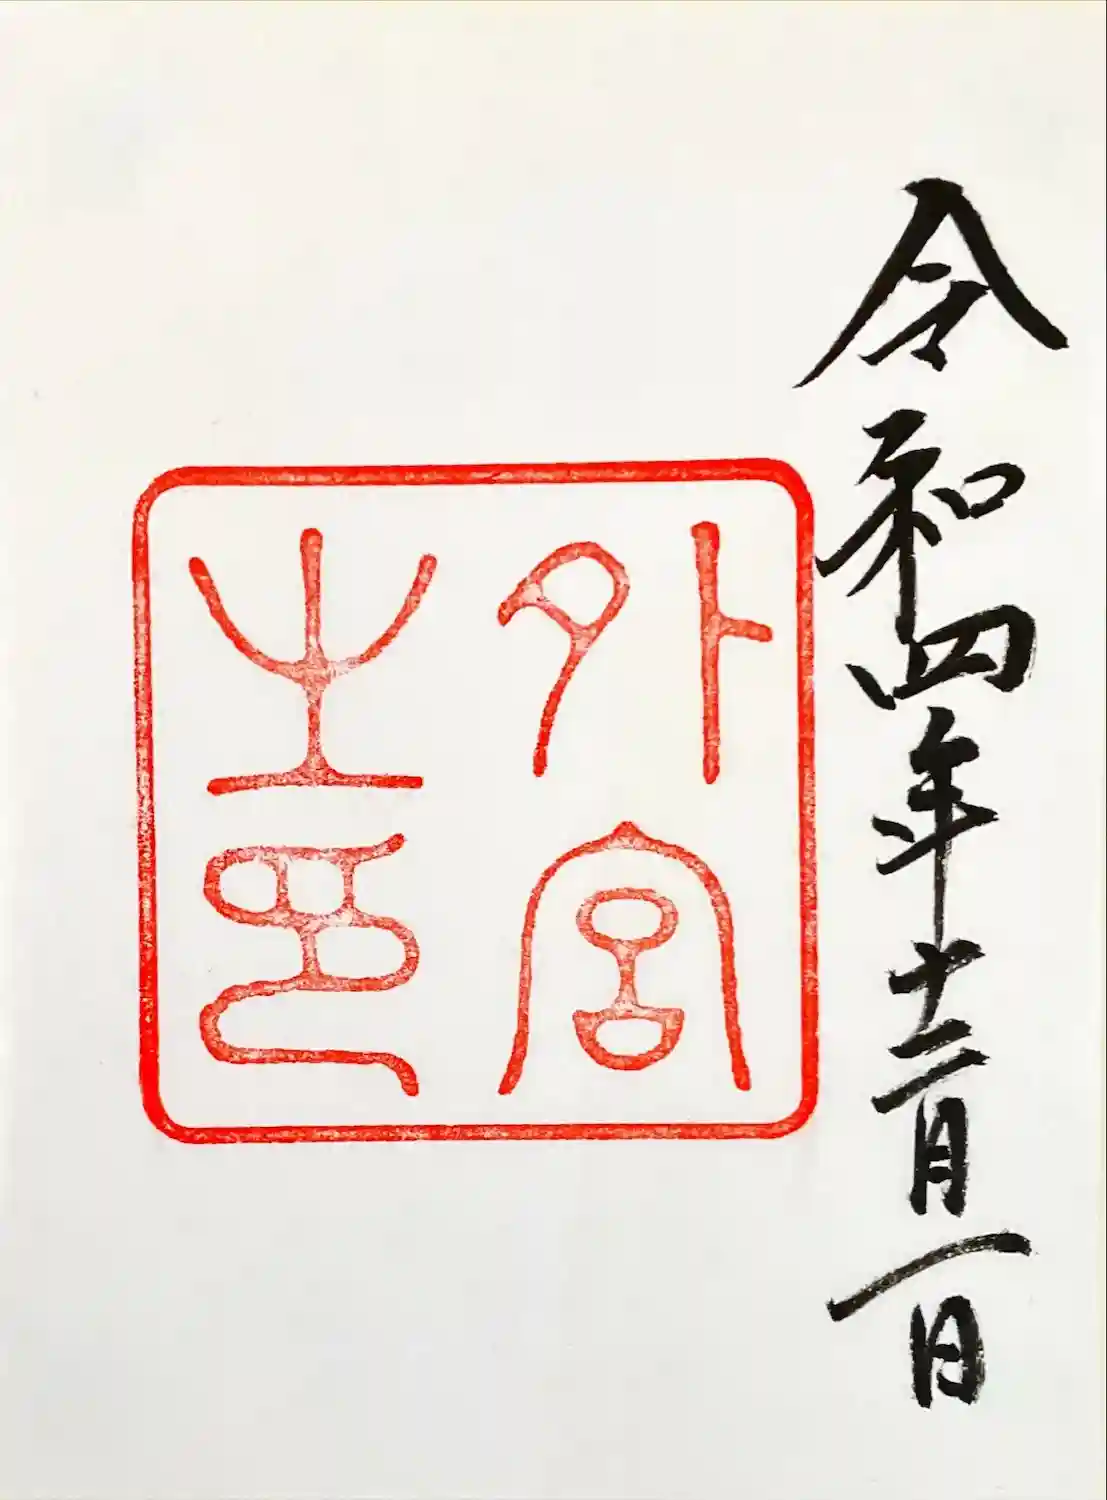 令和四年十二月一日
外宮
之印